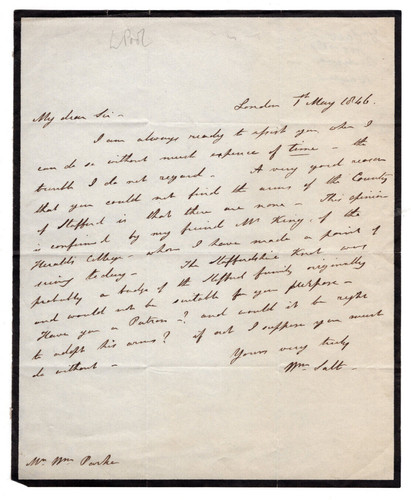 London 1st May 1846.
My dear Sir -
I am always ready to assist you when I
can do so without much expence of time - the
trouble I do not regard - A very good reason
that you could not find the arms of the County
of Stafford is that there are none - This opinion
is confirmed by my friend Mr King, of the
Heralds College - whom I have made a point of
seeing to day - The Staffordshire Knot was
probably a badge of the Stafford family originally
and would not be suitable to your purpose -
Have you a Patron -? and would it be right
to adopt his arms? if not I suppose you must
do without -
Yours very truly
Wm Salt -
Mr Wm Parke